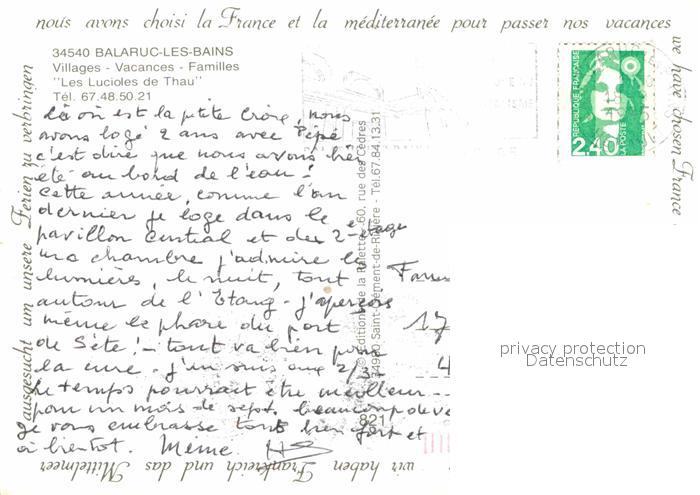 nous avons choisi la France et la méditerranée pour passer nos vacances
we have chosen France
34540 BALARUC-LES-BAINS
Villages - Vacances - Familles
"Les Lucioles de Thau"
Tél. 67.48.50.21
là où est la petite croix, nous
avons logé 2 ans avec Pépé
c'est dire que nous avons
été au bord de l'eau!
Cette année, comme l'an
dernier je loge dans le
pavillon central et des 2e étage
ma chambre j'admire les
lumières, la nuit, tout
autour de l'Etang - j'aperçois
même le phare du port
de Sète! - tout va bien pour
la cure - j'en suis aux 2/3
Le temps pourrait être meilleur
pour un mois de sept. beaucoup de
je vous embrasse tous bien fort et
à bientôt. Meme.
17
4
Editions de la Rafette - 60, rue des Cèdres
34980 Saint-Clément-de-Rivière - Tél. 67.84.13.31
821
REPUBLIQUE FRANÇAISE
2,40
LA POSTE
privacy protection
Datenschutz
wir haben Frankreich und das Mittelmeer
ausgesucht um unsere Ferien zu verbringen